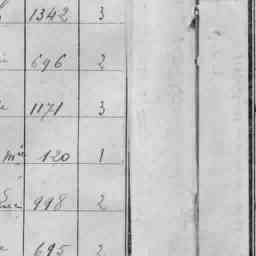 1342 3
696 2
1171 3
120 1
998 2
695 2